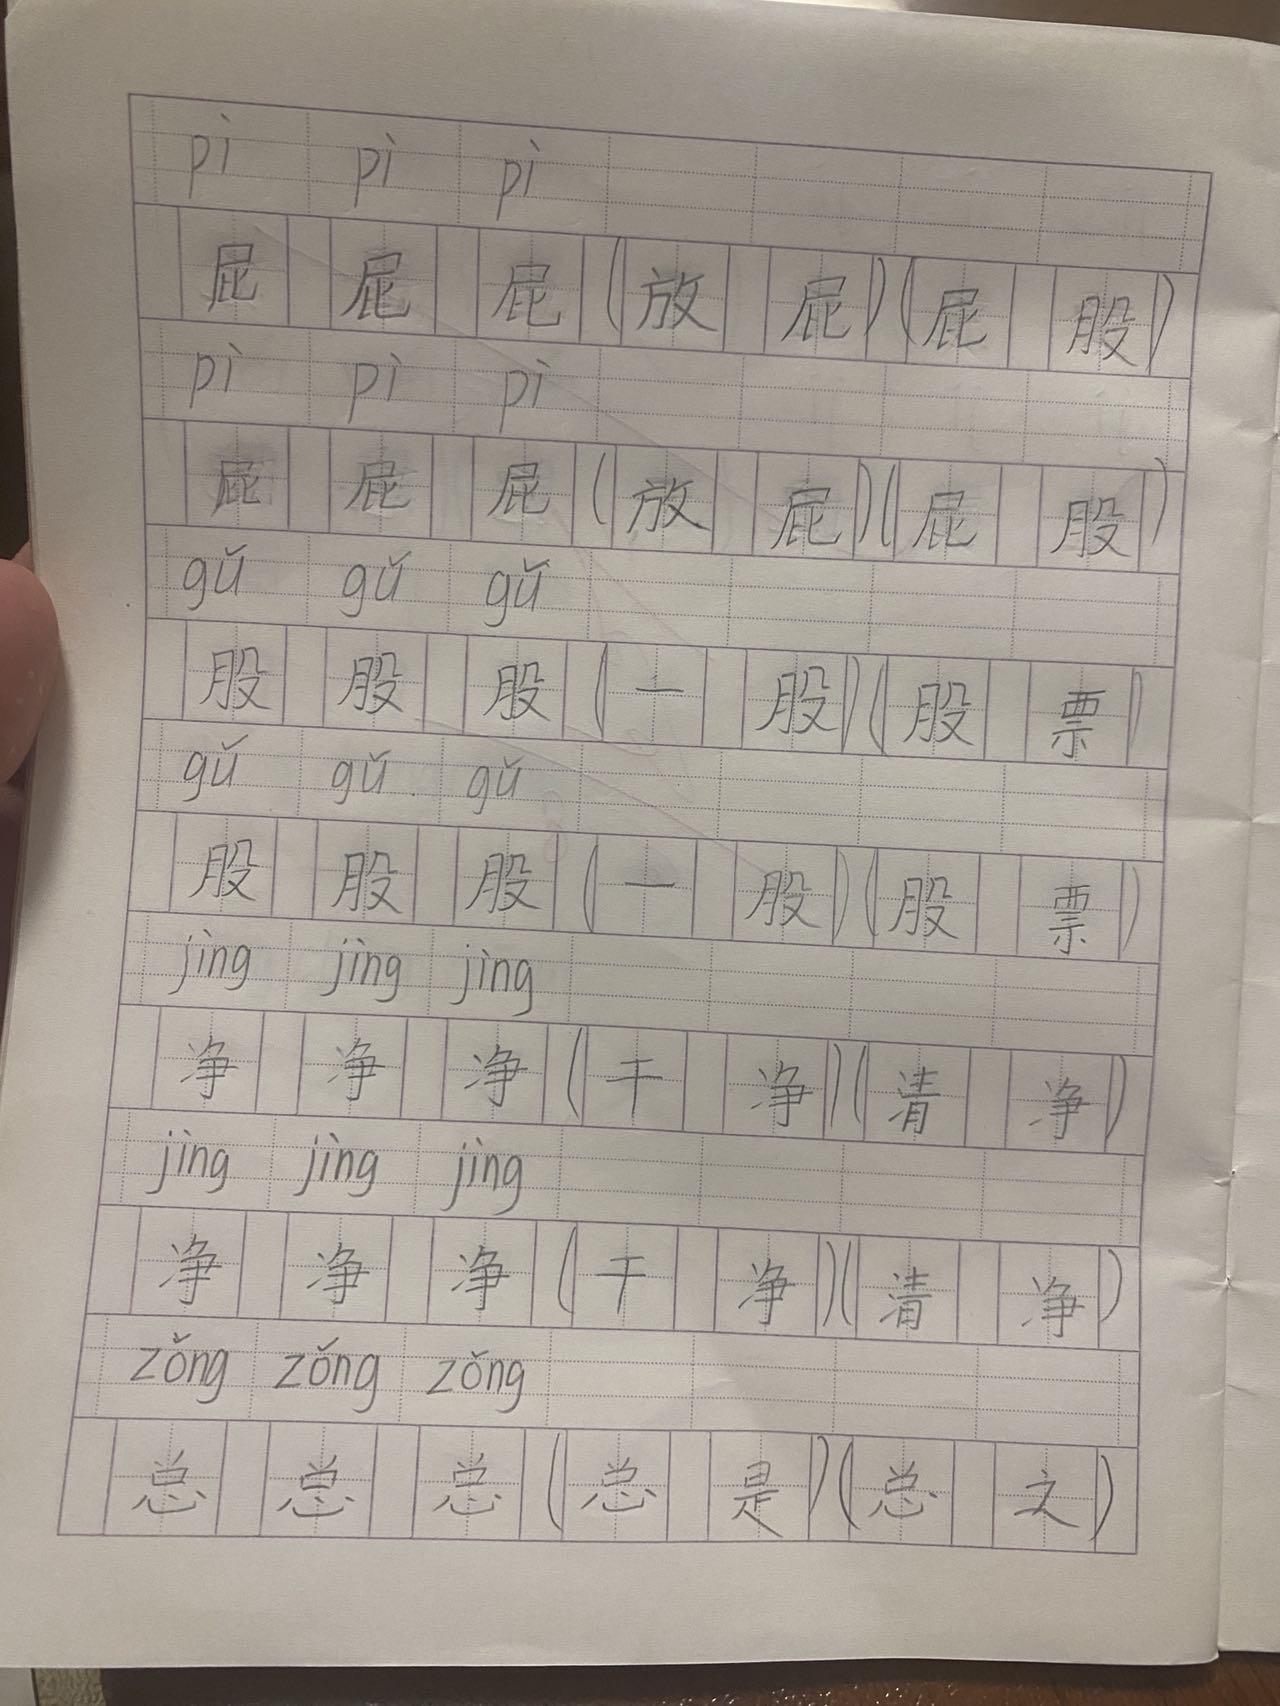 pì pì pì
屁 屁 屁 (放 屁)(屁 股)
pì pì pì
屁 屁 屁 (放 屁)(屁 股)
gǔ gǔ gǔ
股 股 股 (一 股)(股 票)
gǔ gǔ gǔ
股 股 股 (一 股)(股 票)
jìng jìng jìng
净 净 净 (干 净)(清 净)
jìng jìng jìng
净 净 净 (干 净)(清 净)
zǒng zǒng zǒng
总 总 总 (总 是)(总 之)